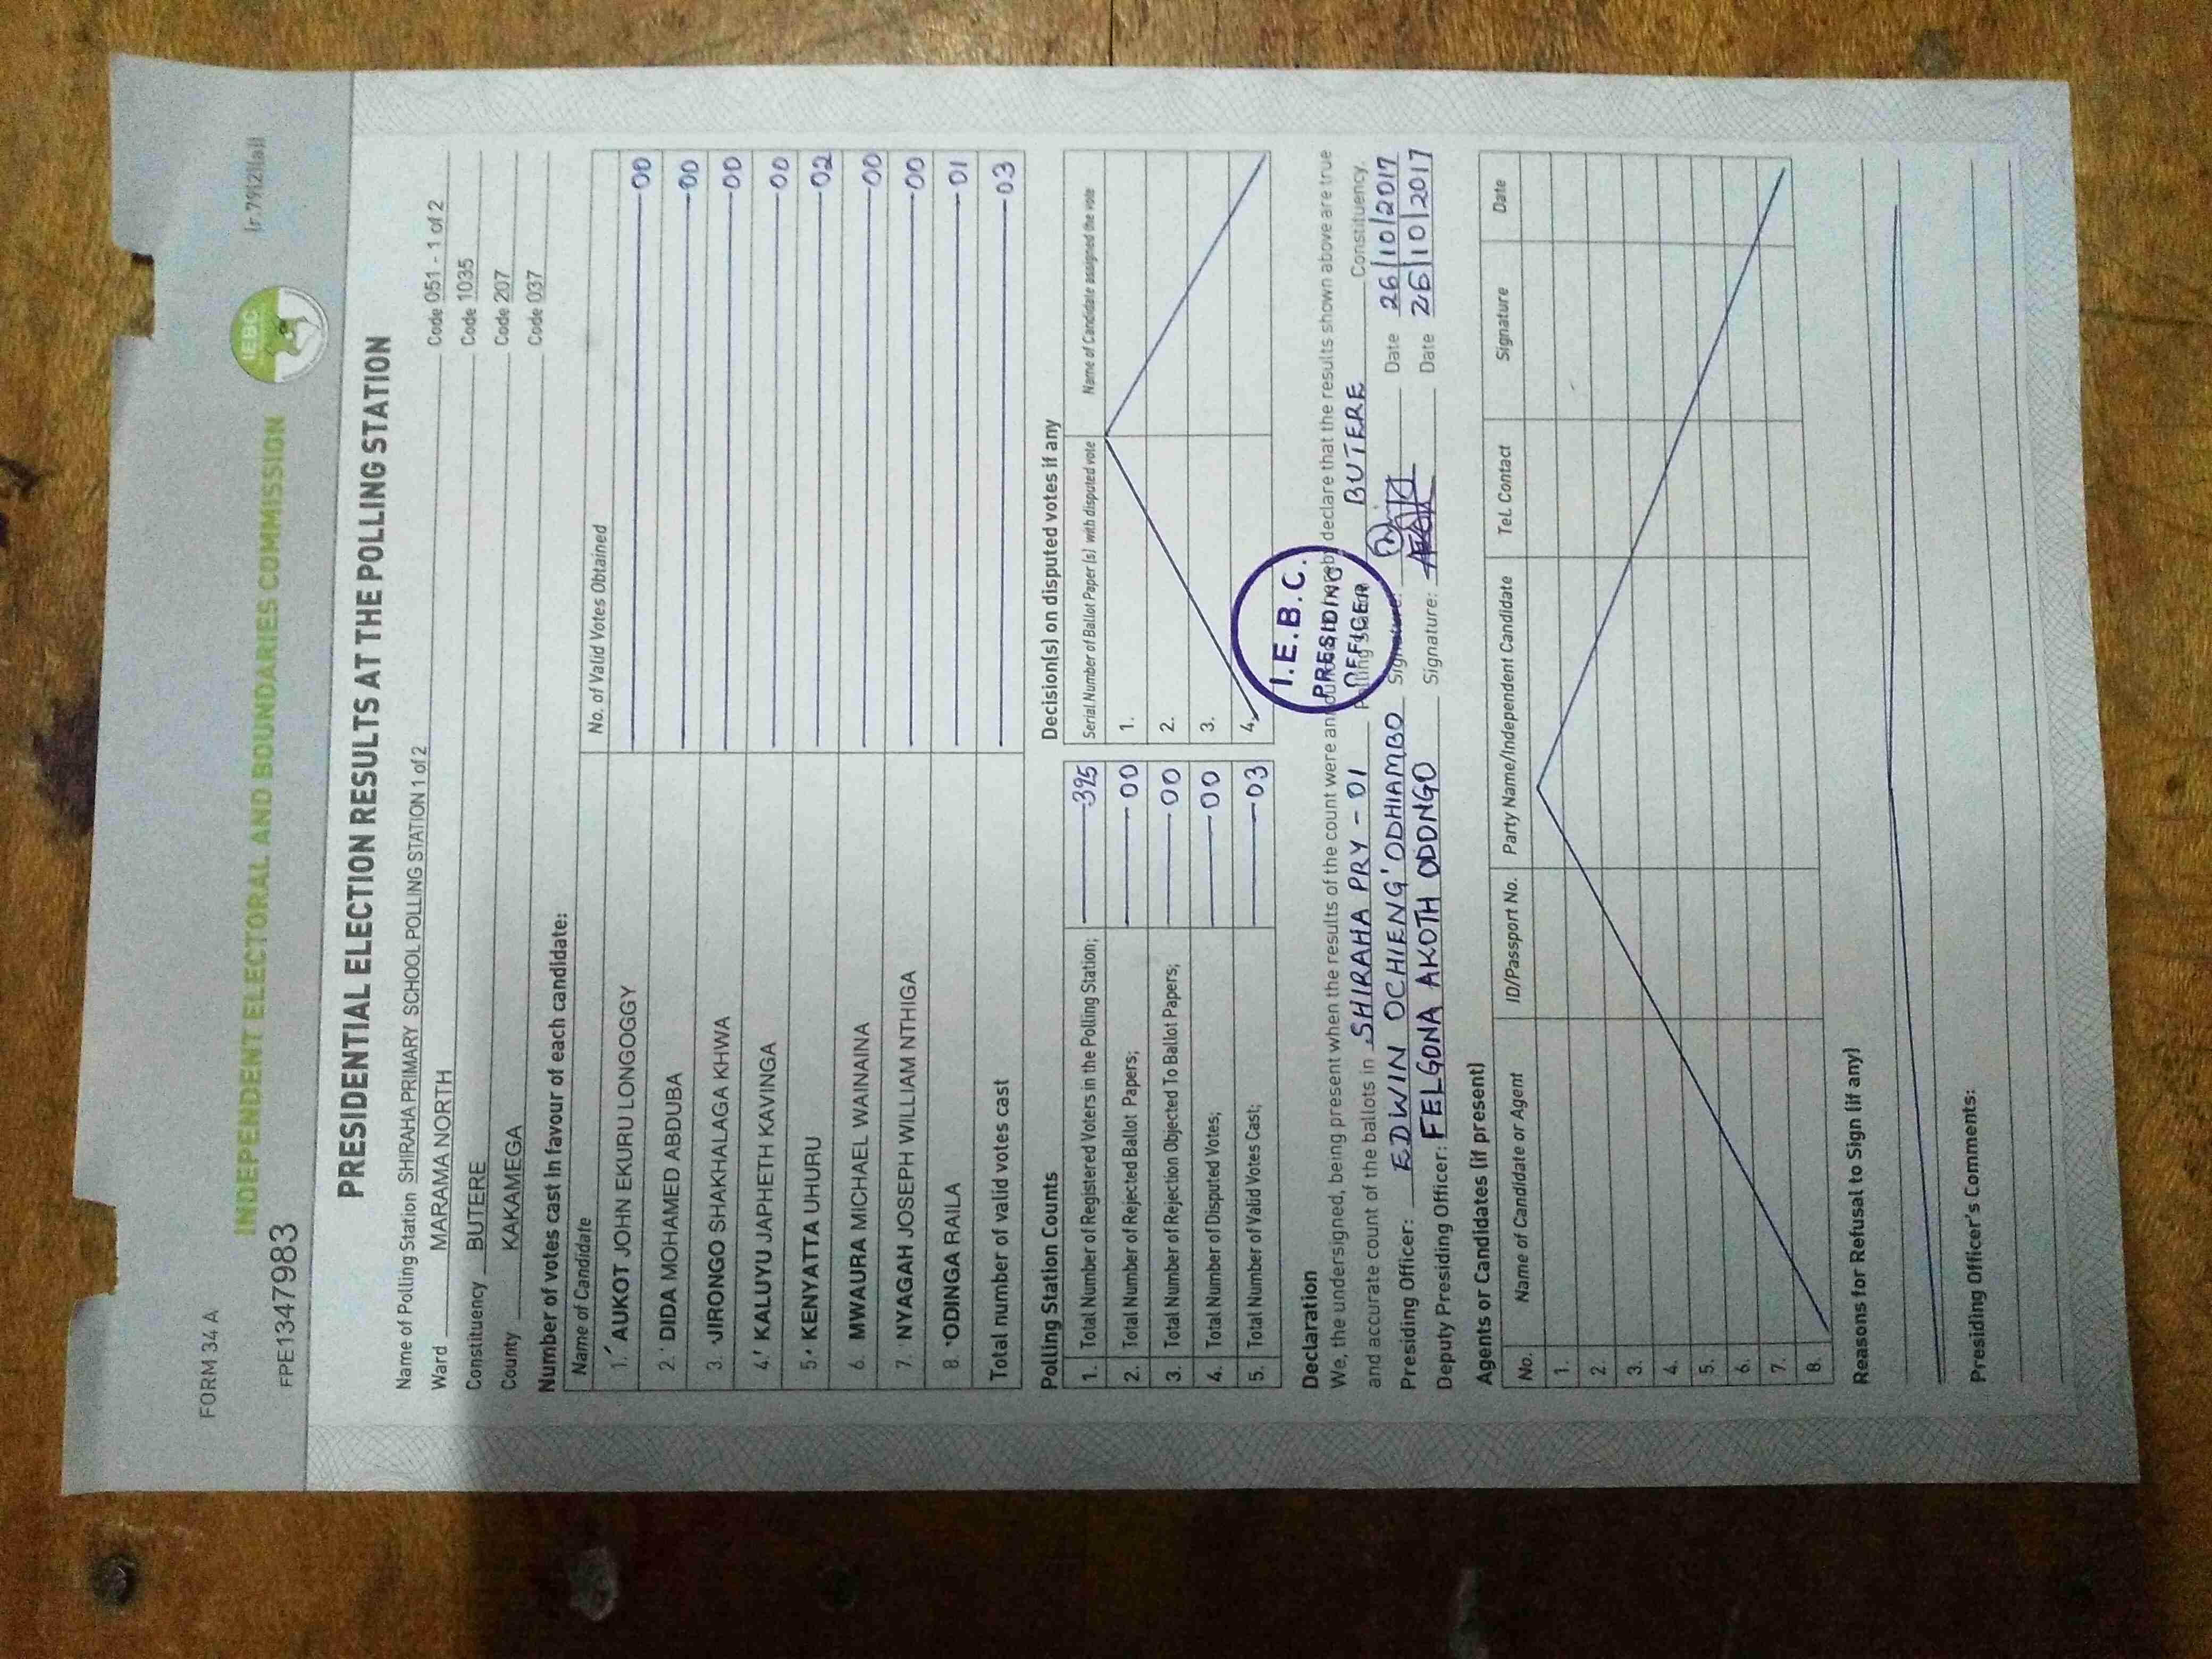 FORM 34 A
(r.79(2)(a))
INDEPENDENT ELECTORAL AND BOUNDARIES COMMISSION
IEBC
FPE1347983
PRESIDENTIAL ELECTION RESULTS AT THE POLLING STATION
Name of Polling Station SHIRAHA PRIMARY SCHOOL POLLING STATION 1 of 2 Code 051 - 1 of 2
Ward MARAMA NORTH Code 1035
Constituency BUTERE Code 207
County KAKAMEGA Code 037
Number of votes cast in favour of each candidate:
Name of Candidate No. of Valid Votes Obtained
1. AUKOT JOHN EKURU LONGOGGY 00
2. DIDA MOHAMED ABDUBA 00
3. JIRONGO SHAKHALAGA KHWA 00
4. KALUYU JAPHETH KAVINGA 00
5. KENYATTA UHURU 02
6. MWAURA MICHAEL WAINAINA 00
7. NYAGAH JOSEPH WILLIAM NTHIGA 00
8. ODINGA RAILA 01
Total number of valid votes cast 03
Polling Station Counts
1. Total Number of Registered Voters in the Polling Station; 395
2. Total Number of Rejected Ballot Papers; 00
3. Total Number of Rejection Objected To Ballot Papers; 00
4. Total Number of Disputed Votes; 00
5. Total Number of Valid Votes Cast; 03
Decision(s) on disputed votes if any
Serial Number of Ballot Paper (s) with disputed vote Name of Candidate assigned the vote
1.
2.
3.
4.
I.E.B.C.
PRESIDING
OFFICER
Declaration
We, the undersigned, being present when the results of the count were announced hereby declare that the results shown above are true
and accurate count of the ballots in SHIRAHA PRY - 01 Polling Station BUTERE Constituency.
Presiding Officer: EDWIN OCHIENG' ODHIAMBO Signature: Date 26/10/2017
Deputy Presiding Officer: FELGONA AKOTH ODONGO Signature: Date 26/10/2017
Agents or Candidates (if present)
No. Name of Candidate or Agent ID/Passport No. Party Name/Independent Candidate Tel. Contact Signature Date
1.
2.
3.
4.
5.
6.
7.
8.
Reasons for Refusal to Sign (if any)
Presiding Officer's Comments: